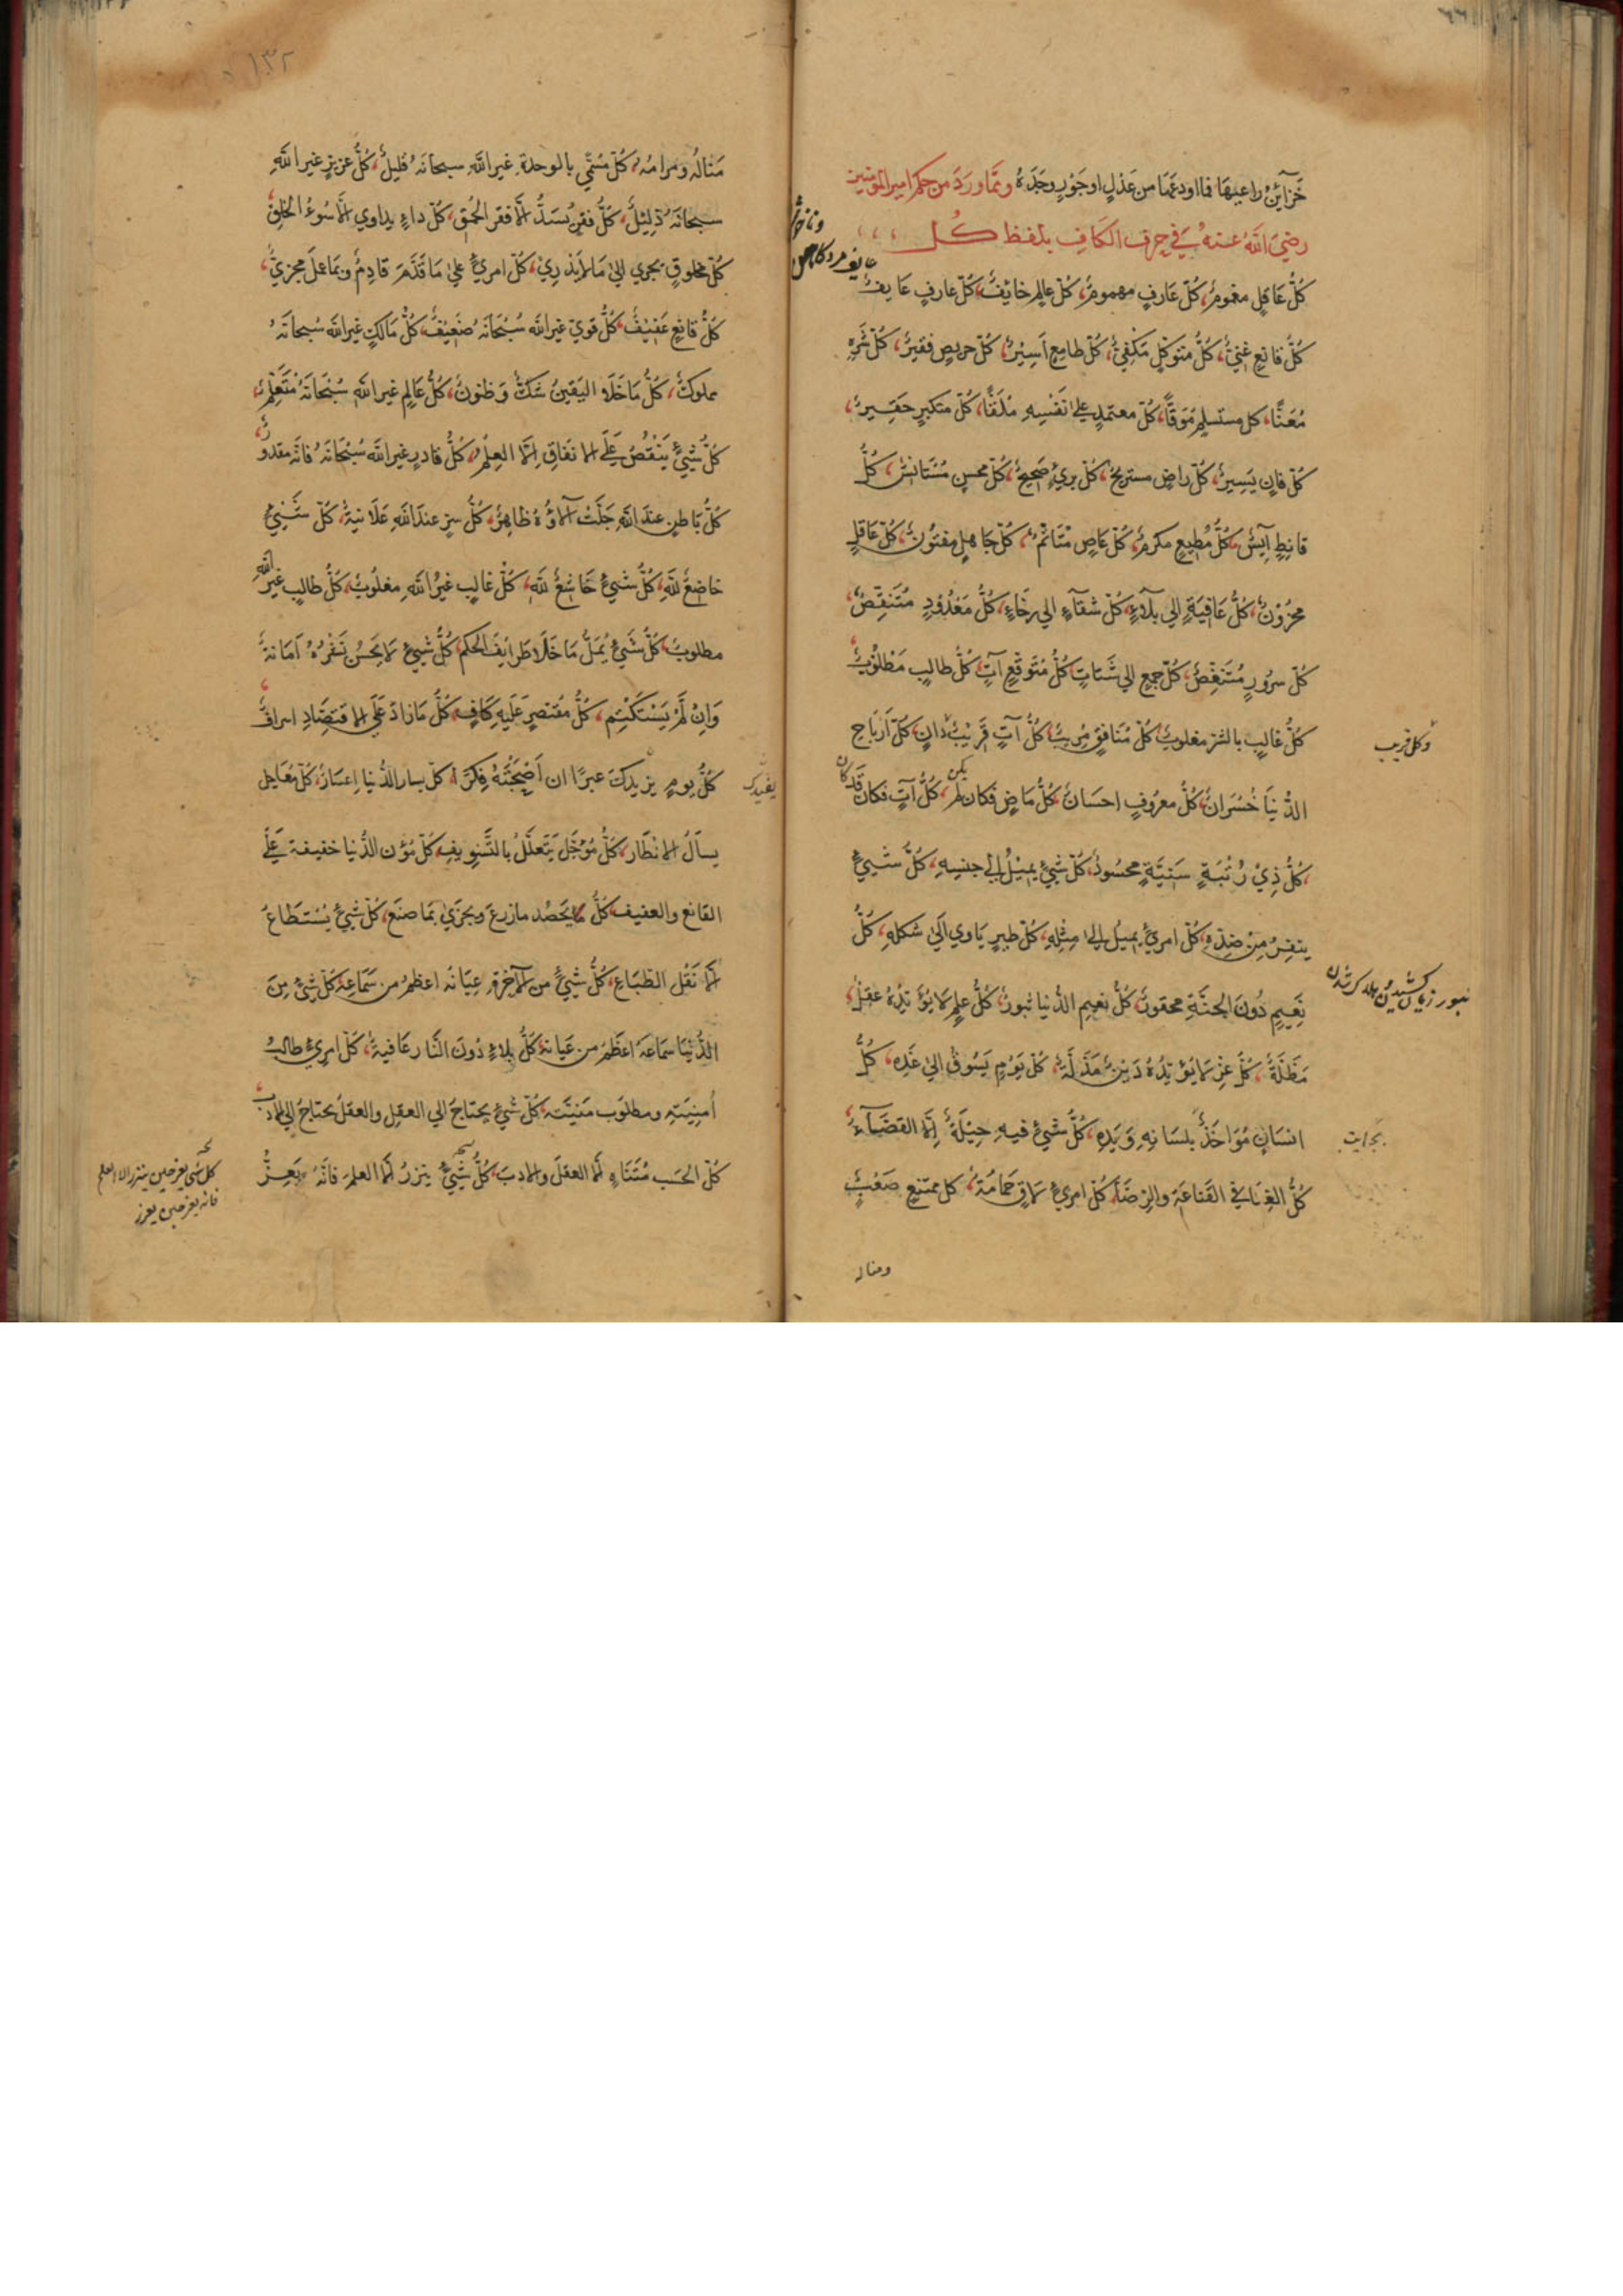 خَزَآئِنُ راعيهَا فما اودعهَا من عَدْلٍ او جَوْرٍ وجَدَهُ وممَّا ورَدَ من حكم امير المؤمنين
رضيَ اللهُ عنهُ في حرف الكَافِ بلفظ كُل
كُلّ عَاقِلٍ مغمُومٌ، كُلّ عَارفٍ مهمومٌ، كُلّ عالِمٍ خائِفٌ، كُلّ عارفٍ عَايفٌ
كُلّ قانعٍ غَنيٌّ، كُلّ متوكّلٍ مَكْفِيٌّ، كُلّ طامِعٍ اَسِيْرٌ، كُلّ حريصٍ فقيرٌ، كُلّ شَرِهٍ
مُعَنًّا، كل مستسلِمٍ مُوَقًّا، كُلّ معتمدٍ عليٰ نَفْسِهِ مُلَقًّا، كُلّ متكبرٍ حَقِيرٌ،
كُلّ فانٍ يَسِيرٌ، كُلّ راضٍ مستريحٌ، كُلّ برئٍ صَحِيحٌ، كُلّ محسِنٍ مُسْتَانِسٌ، كُلُّ
قانِطٍ آيِسٌ، كُلُّ مُطِيعٍ مكرمٌ، كُلّ عَاصٍ مُتَاثِّمٌ، كُلّ جَاهِلٍ مفتُونٌ، كُلّ عَاقلٍ
محزُوْنٌ، كُلُّ عَافِيَةٍ الي بلَآءٍ، كُلّ شقَآءٍ الي رخَاءٍ، كُلُّ مَعْدُودٍ مُتَنَقِّصٌ،
كُلّ سرُورٍ مُتَنَغِّصٌ، كُلّ جمعٍ الي شَتَاتٍ، كُلُّ مُتَوَقَّعٍ آتٍ، كُلُّ طالبٍ مَطْلُوْبٌ،
كُلُّ غالِبٍ بالشر مغلوبٌ، كُلّ مُنَافِقٍ مُرِيبٌ، كُلُّ آتٍ قَرِيْبٌ دانٍ، كُلّ اَرْبَاحِ
وكل قريب
الدُّنيَا خُسْرَانٌ، كُلُّ معرُوفٍ احسَانٌ، كُلُّ مَاضٍ فكان لَمْ يكن، كُلُّ آتٍ فكان قَد كان
كُلُّ ذِيْ رُتْبَةٍ سَنِيَّةٍ محسُودٌ، كُلّ شئٍ يمِيْلُ الي جنسِهِ، كُلُّ شَئٍ
ينفِرُ مِنْ ضدّهِ، كُلّ امرئٍ يميلُ اليٰ مِثْلِهِ، كُلّ طيرٍ ياوي اليٰ شكلهِ، كُلُّ
نَعِيمٍ دُونَ الجنَّةِ محقورٌ، كُلّ نعيم الدُّنيا ثبورٌ، كُلُّ علمٍ لا يُؤَيّدُهُ عقلٌ،
مَضَلَّةٌ، كُلُّ عزٍّ لا يُؤَيّدُهُ دَيْنٌ مَذَلَّةٌ، كُلّ يَوْمٍ يَسُوقُ اليٰ غَدِهِ، كُلُّ
انسَانٍ مُؤَاخَذٌ بلسَانِهِ وَيَدِهِ، كُلُّ شئٍ فيهِ حِيْلَةٌ اِلَّا القَضَآءُ،
كُلُّ الغِنَا في القَناعَةِ والرِضَا، كُلّ امرئٍ لاقٍ حِمَامَهُ، كل ممتنعٍ صَعْبٌ
ومناله
١٣٢
مَنالُه ومرامُهُ، كُلّ مُسَمًّي بالوحدةِ غيرِ اللهِ سبحانَهُ قليلٌ، كُلُّ عزيزٍ غيرِ اللهِ
سبحانَهُ ذليْلٌ، كُلُّ فقرٍ يُسَدُّ الّا فقر الحُمْقِ، كُلّ داءٍ يداوي الَّا سُوءَ الخُلقِ،
كُلّ مخلوقٍ يجري اليٰ مَا لا يَدْرِيْ، كُلّ امرئٍ عليٰ مَا قَدَّمَ قادِمٌ وبمَا عمِلَ مجزيٌّ،
كُلُّ قانِعٍ عَفيْفٌ، كُلُّ قَويٍّ غيرِ الله سُبْحَانَهُ ضَعِيْفٌ، كُلُّ مَالكٍ غيرِ الله سُبحانَهُ
مملوكٌ، كُلُّ مَا خَلَا اليَقينَ شَكٌّ وَظنونٌ، كُلُّ عَالِمٍ غيرِ اللهِ سُبْحَانَهُ مُتَعَلِّمٌ،
كُلُّ شَئٍ يَنْقُصُ عَلَي الانفَاقِ اِلَّا العِلْمَ، كُلُّ قادرٍ غيرِ الله سُبْحَانَهُ فانّهُ مقدورٌ،
كُلُّ بَاطنٍ عندَ اللهِ جَلَّتْ آلَاؤُهُ ظاهِرٌ، كُلُّ سرٍّ عندَ اللهِ عَلَانيةٌ، كُلّ شَئٍ
خاضعٌ للهِ، كُلُّ شَئٍ خَاشِعٌ للهِ، كُلُّ غالبٍ غيرُ اللهِ مغلُوبٌ، كُلُّ طالبٍ غيرُ اللهِ
مطلوبٌ، كُلُّ شَئٍ يُمَلُّ مَا خَلَا طَرَائِفَ الحكم، كُلُّ شَئٍ لا يَحسُنُ نَشْرُهُ اَمَانةٌ
وَاِنْ لَمْ يَسْتَكْتِمْ، كُلُّ مقتصرٍ عَلَيهِ كَافٍ، كُلُّ مَا زادَ عَلَي الاقتصَادِ اسرافٌ،
كُلُّ يومٍ يزيدكَ عبرًا ان اَصْحَبْتَهُ فِكرًا، كلّ يسار الدُّنيا اِعسَارٌ، كُلّ مُعَاجِلٍ
يفيدك
يسألُ الانظَار، كُلُّ مُؤجَّلٍ يَتَعلَّلُ بالتَّسويفِ، كُلّ مُؤن الدُّنيا خفيفة عَلَيٰ
القانع والعفيف، كُلٌّ يَحصُد مازرعَ ويجزَيٰ بمَا صنَع، كُلّ شئٍ يُسْتَطَاعُ
الَّا نَقْل الطّبَاعِ، كُلُّ شَئٍ من الآخرةِ عِيَانُه اعظمُ من سَمَاعِهِ، كُلّ شئٍ مِنَ
الدُّنيَا سَمَاعهُ اعظَمُ من عيَانهِ، كُلُّ بلاءٍ دُونَ النَّار عَافيةٌ، كُلّ امرئٍ طالبُ
اُمنِيَتِهِ ومطلوب مَنيّتِه، كُلّ شَئٍ يحتاجُ الي العقلِ والعقلُ يحتاجُ الي الادب،
كُلّ الحَسَبِ مُتَنَاهٍ الَّا العقلَ والادبَ، كُلُّ شَئٍ ينزرُ الَّا العلمَ فانَّهُ يَعِزُّ
كل شي يعز حين ينزر الا العلم
فانه يعز حين يغزر